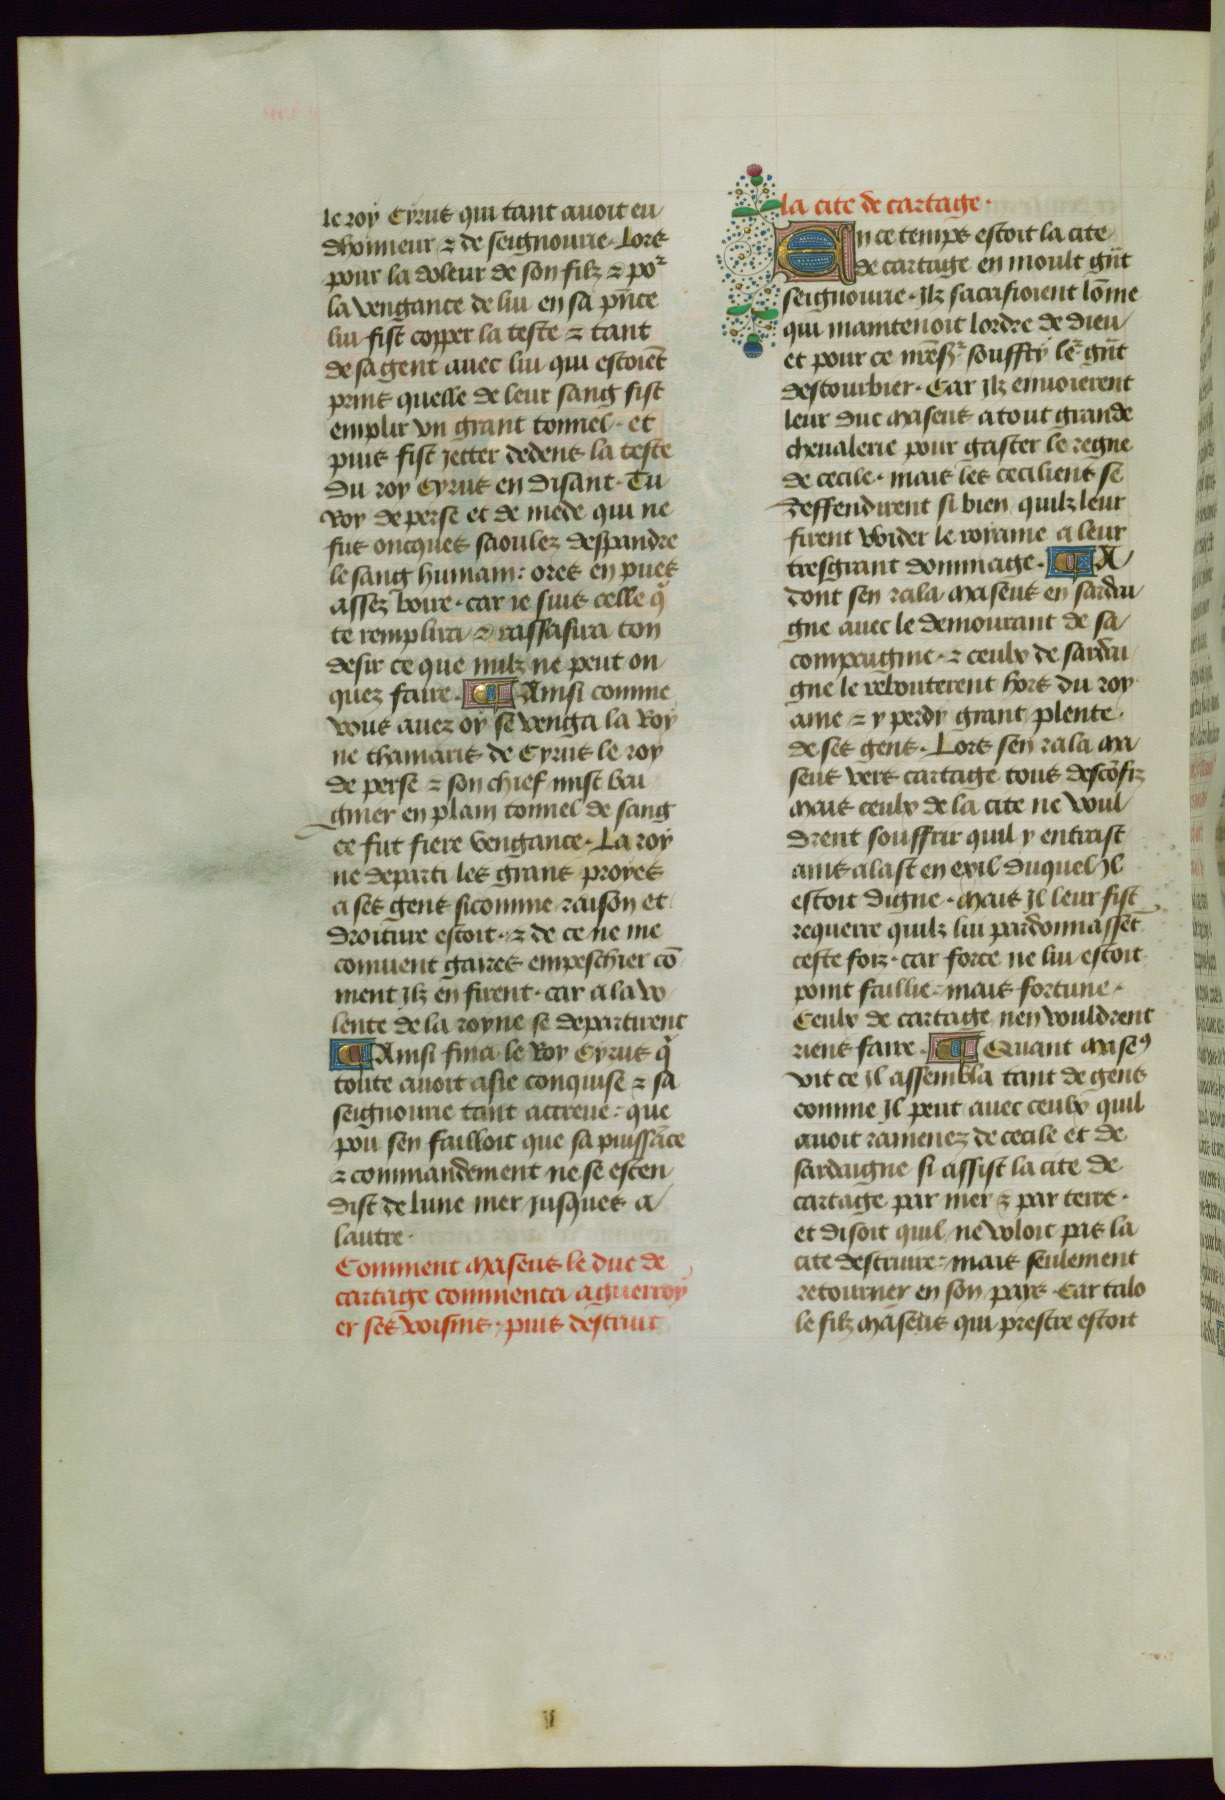 le roy Cyrus qui tant auoit eu
dhonneur ⁊ de seignourie. Lors
pour la doleur de son filz ⁊ por
la vengance de lui en sa pñce
lui fist copper la teste ⁊ tant
de sa gent auec lui qui estoiẽt
prins quelle de leur sang fist
emplir vn grant tonnel. et
puis fist jetter dedens la teste
du roy Cyrus en disant. Tu
Roy de perse et de mede qui ne
fus oncques saoulez despandre
le sang humain: ores en pues
assez boire. car ie suis celle q̃
te remplira ⁊ rassasira ton
desir ce que nulz ne peut on
quez faire. Ainsi comme
vous auez oy se venga la Roy
ne thamaris de Cyrus le roy
de perse ⁊ son chief mist bai
gnier en plain tonnel de sang
ce fut fiere vengance. La roy
ne departi les grans proyes
a ses gens sicomme raison et
droiture estoit. ⁊ de ce ne me
conuient gaires empeschier cõ
ment jlz en firent. car a la vo
lente de la royne se departirent
Ainsi fina le Roy Cyrus q̃
toute auoit asie conquise ⁊ sa
seignourie tant accreue: que
pou sen failloit que sa puissãce
⁊ commandement ne se esten
dist de lune mer jusques a
lautre.
Comment Maseus le duc de
cartage commenca a guerroy
er ses voisins. puis destruit
la cite de cartage.
En ce temps estoit la cite
de cartage en moult grãt
seignourie. jlz sacrifioient lõme
qui maintenoit lordre de dieu
et pour ce souffry grãt
destourbier. Car jlz enuoierent
leur duc Maseus a tout grande
cheualerie pour gaster le regne
de cecile. mais les ceciliens se
deffendirent si bien quilz leur
firent vvider le royaume a leur
tresgrant dommage. A
dont sen rala Maseus en sardai
gne auec le demourant de sa
compaignie. ⁊ ceulx de sardai
gne le rebouterent hors du roy
ame ⁊ y perdy grant plente
de ses gens. Lors sen rala Ma
seus vers cartage tous descõfiz
Mais ceulx de la cite ne voul
drent souffrir quil y entrast
ains alast en exil duquel jl
estoit digne. Mais jl leur fist
requerre quilz lui pardonnassẽt
ceste foiz. car force ne lui estoit
point faillie. mais fortune.
Ceulx de cartage nen vouldrent
riens faire. Quant Maseꝰ
vit ce jl assembla tant de gens
comme jl peut auec ceulx quil
auoit ramenez de cecile et de
sardaigne si assist la cite de
cartage par mer ⁊ par terre.
et disoit quil ne voloit pas la
cite destruire: mais seulement
retourner en son pais. Car talo
le filz Maseus qui prestre estoit